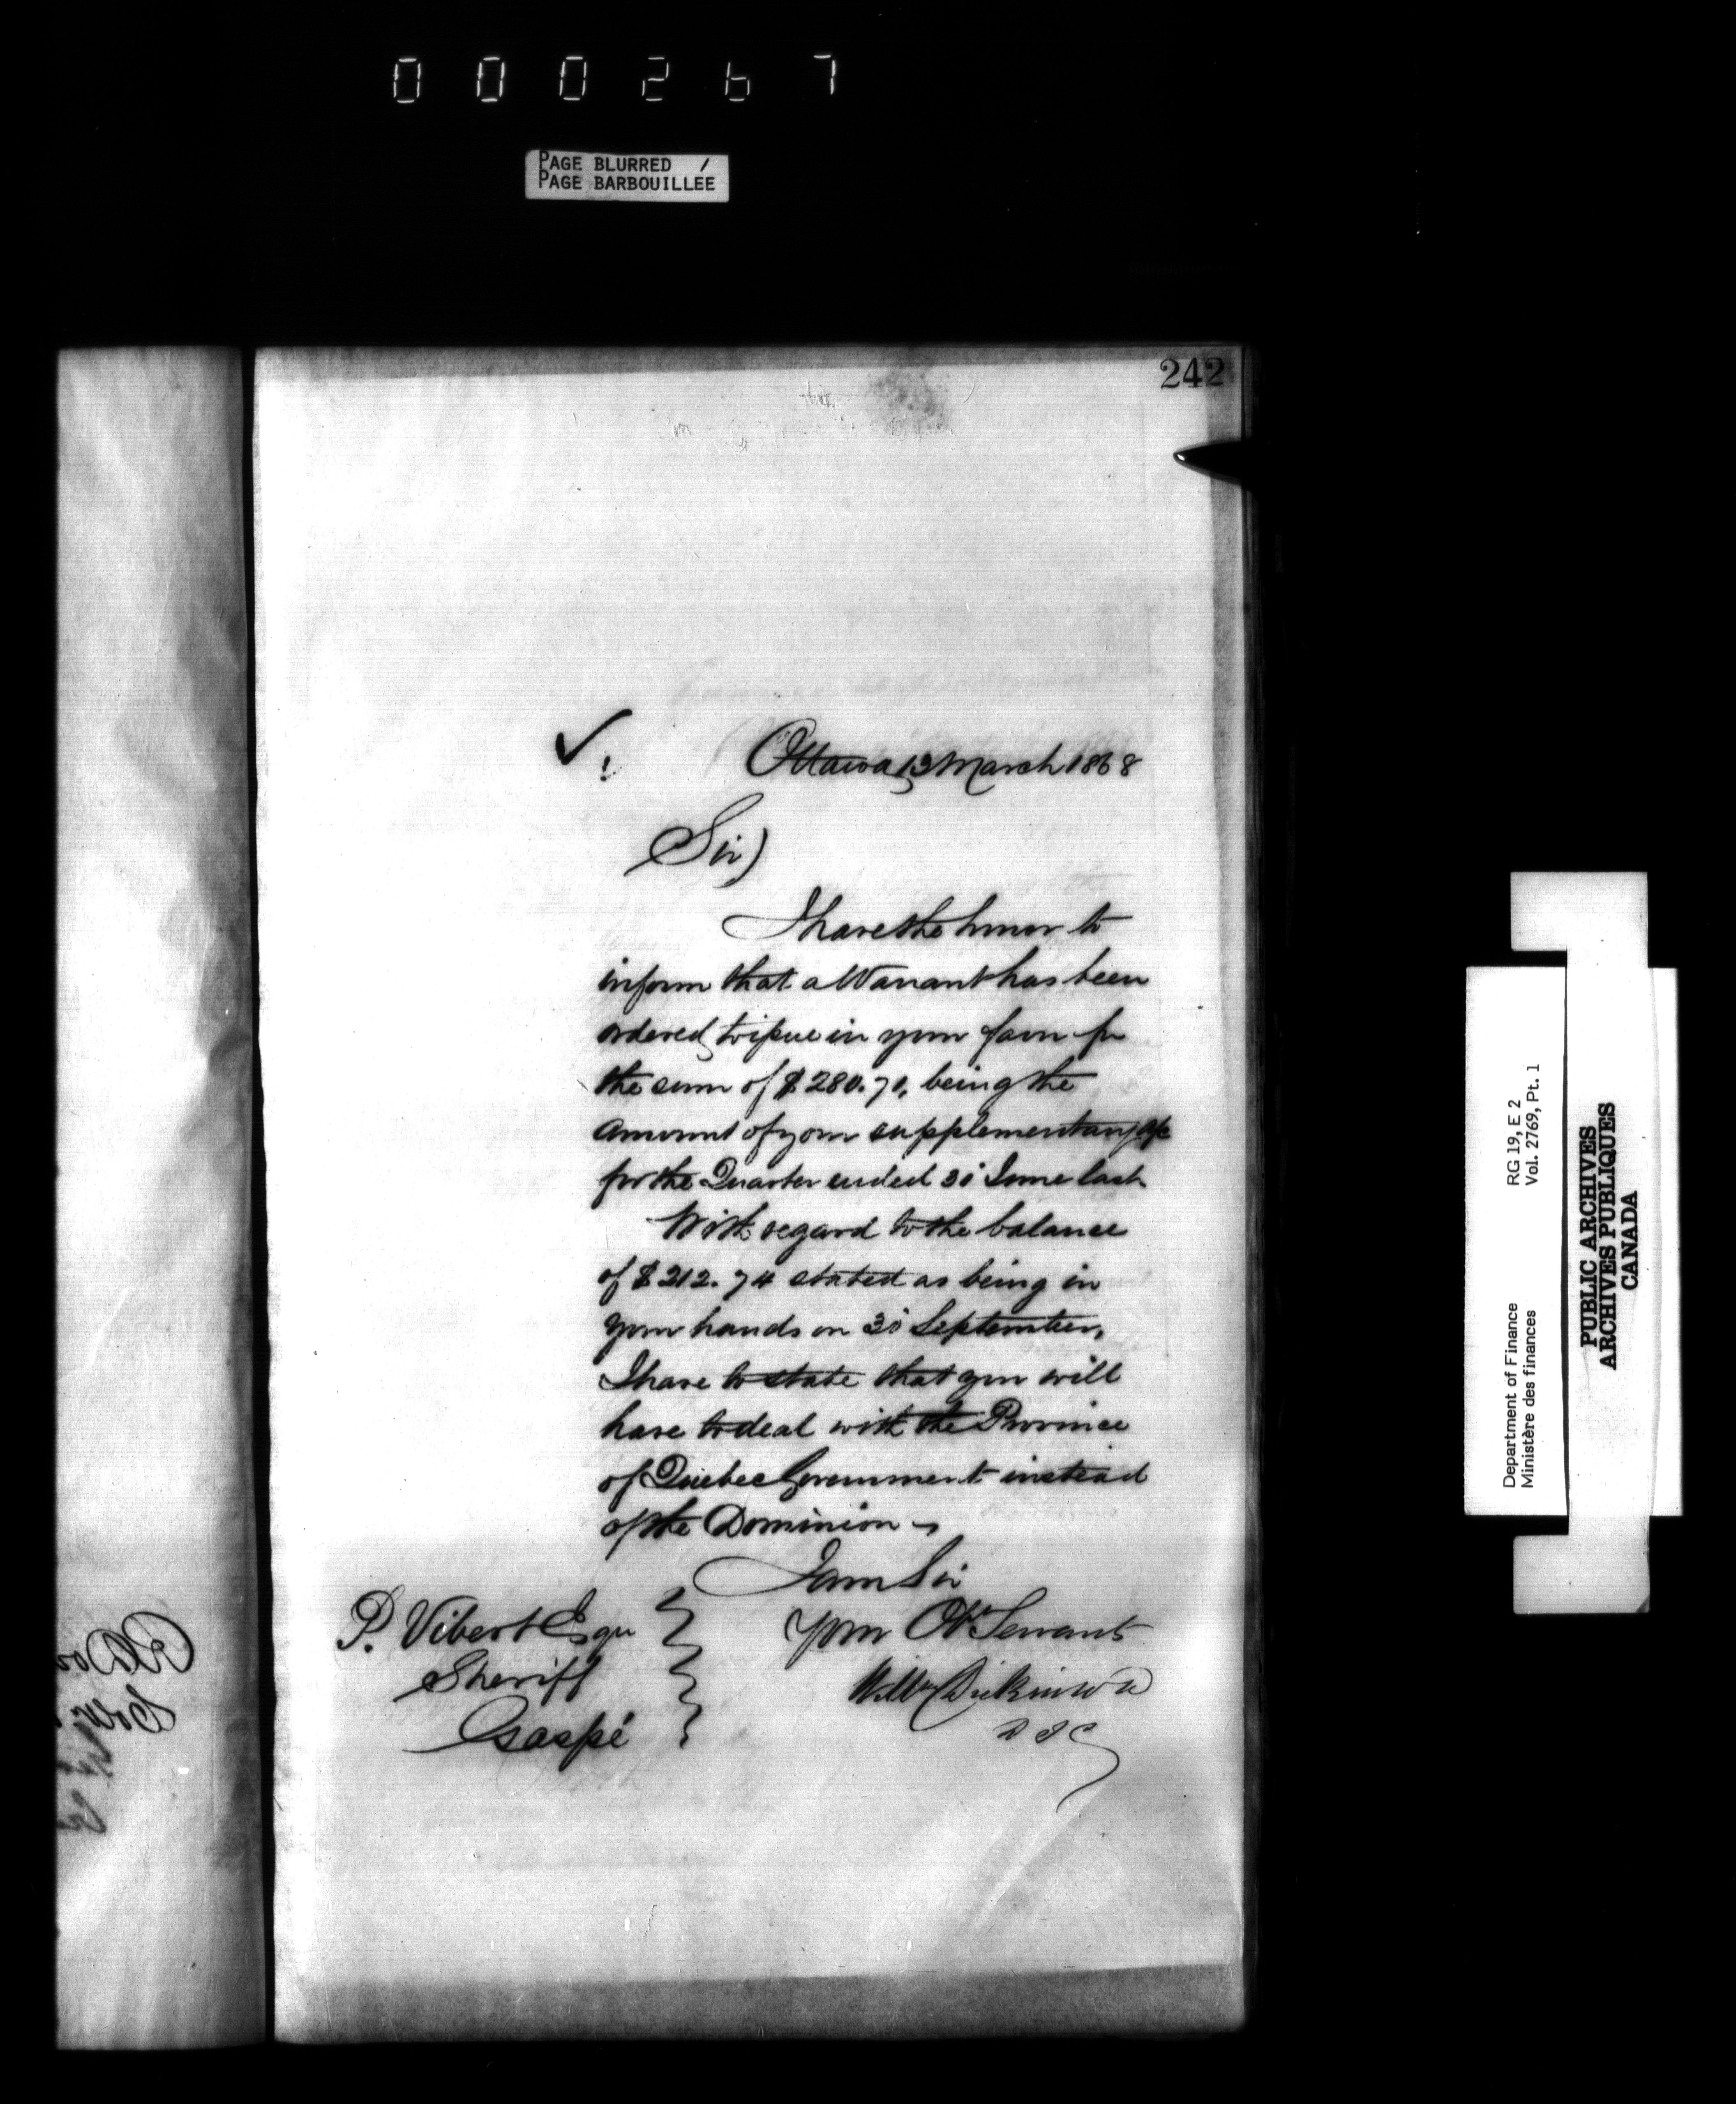 000267
PAGE BLURRED /
PAGE BARBOUILLEE
242
Ottawa 13 March 1868
Sir,
I have the honor to
inform that a Warrant has been
ordered to issue in your favor for
the sum of $280.70, being the
amount of your supplementary a/c
for the Quarter ended 30 June last.
With regard to the balance
of $212.74 stated as being in
your hands on 30 September,
I have to state that you will
have to deal with the Province
of Quebec Government instead
of the Dominion
I am Sir
Your Obt Servant
Willm Dickinson
D I G
P. Vibert Esqr
Sheriff
Gaspé
Department of Finance RG 19, E 2
Ministère des finances Vol. 2769, Pt. 1
PUBLIC ARCHIVES
ARCHIVES PUBLIQUES
CANADA